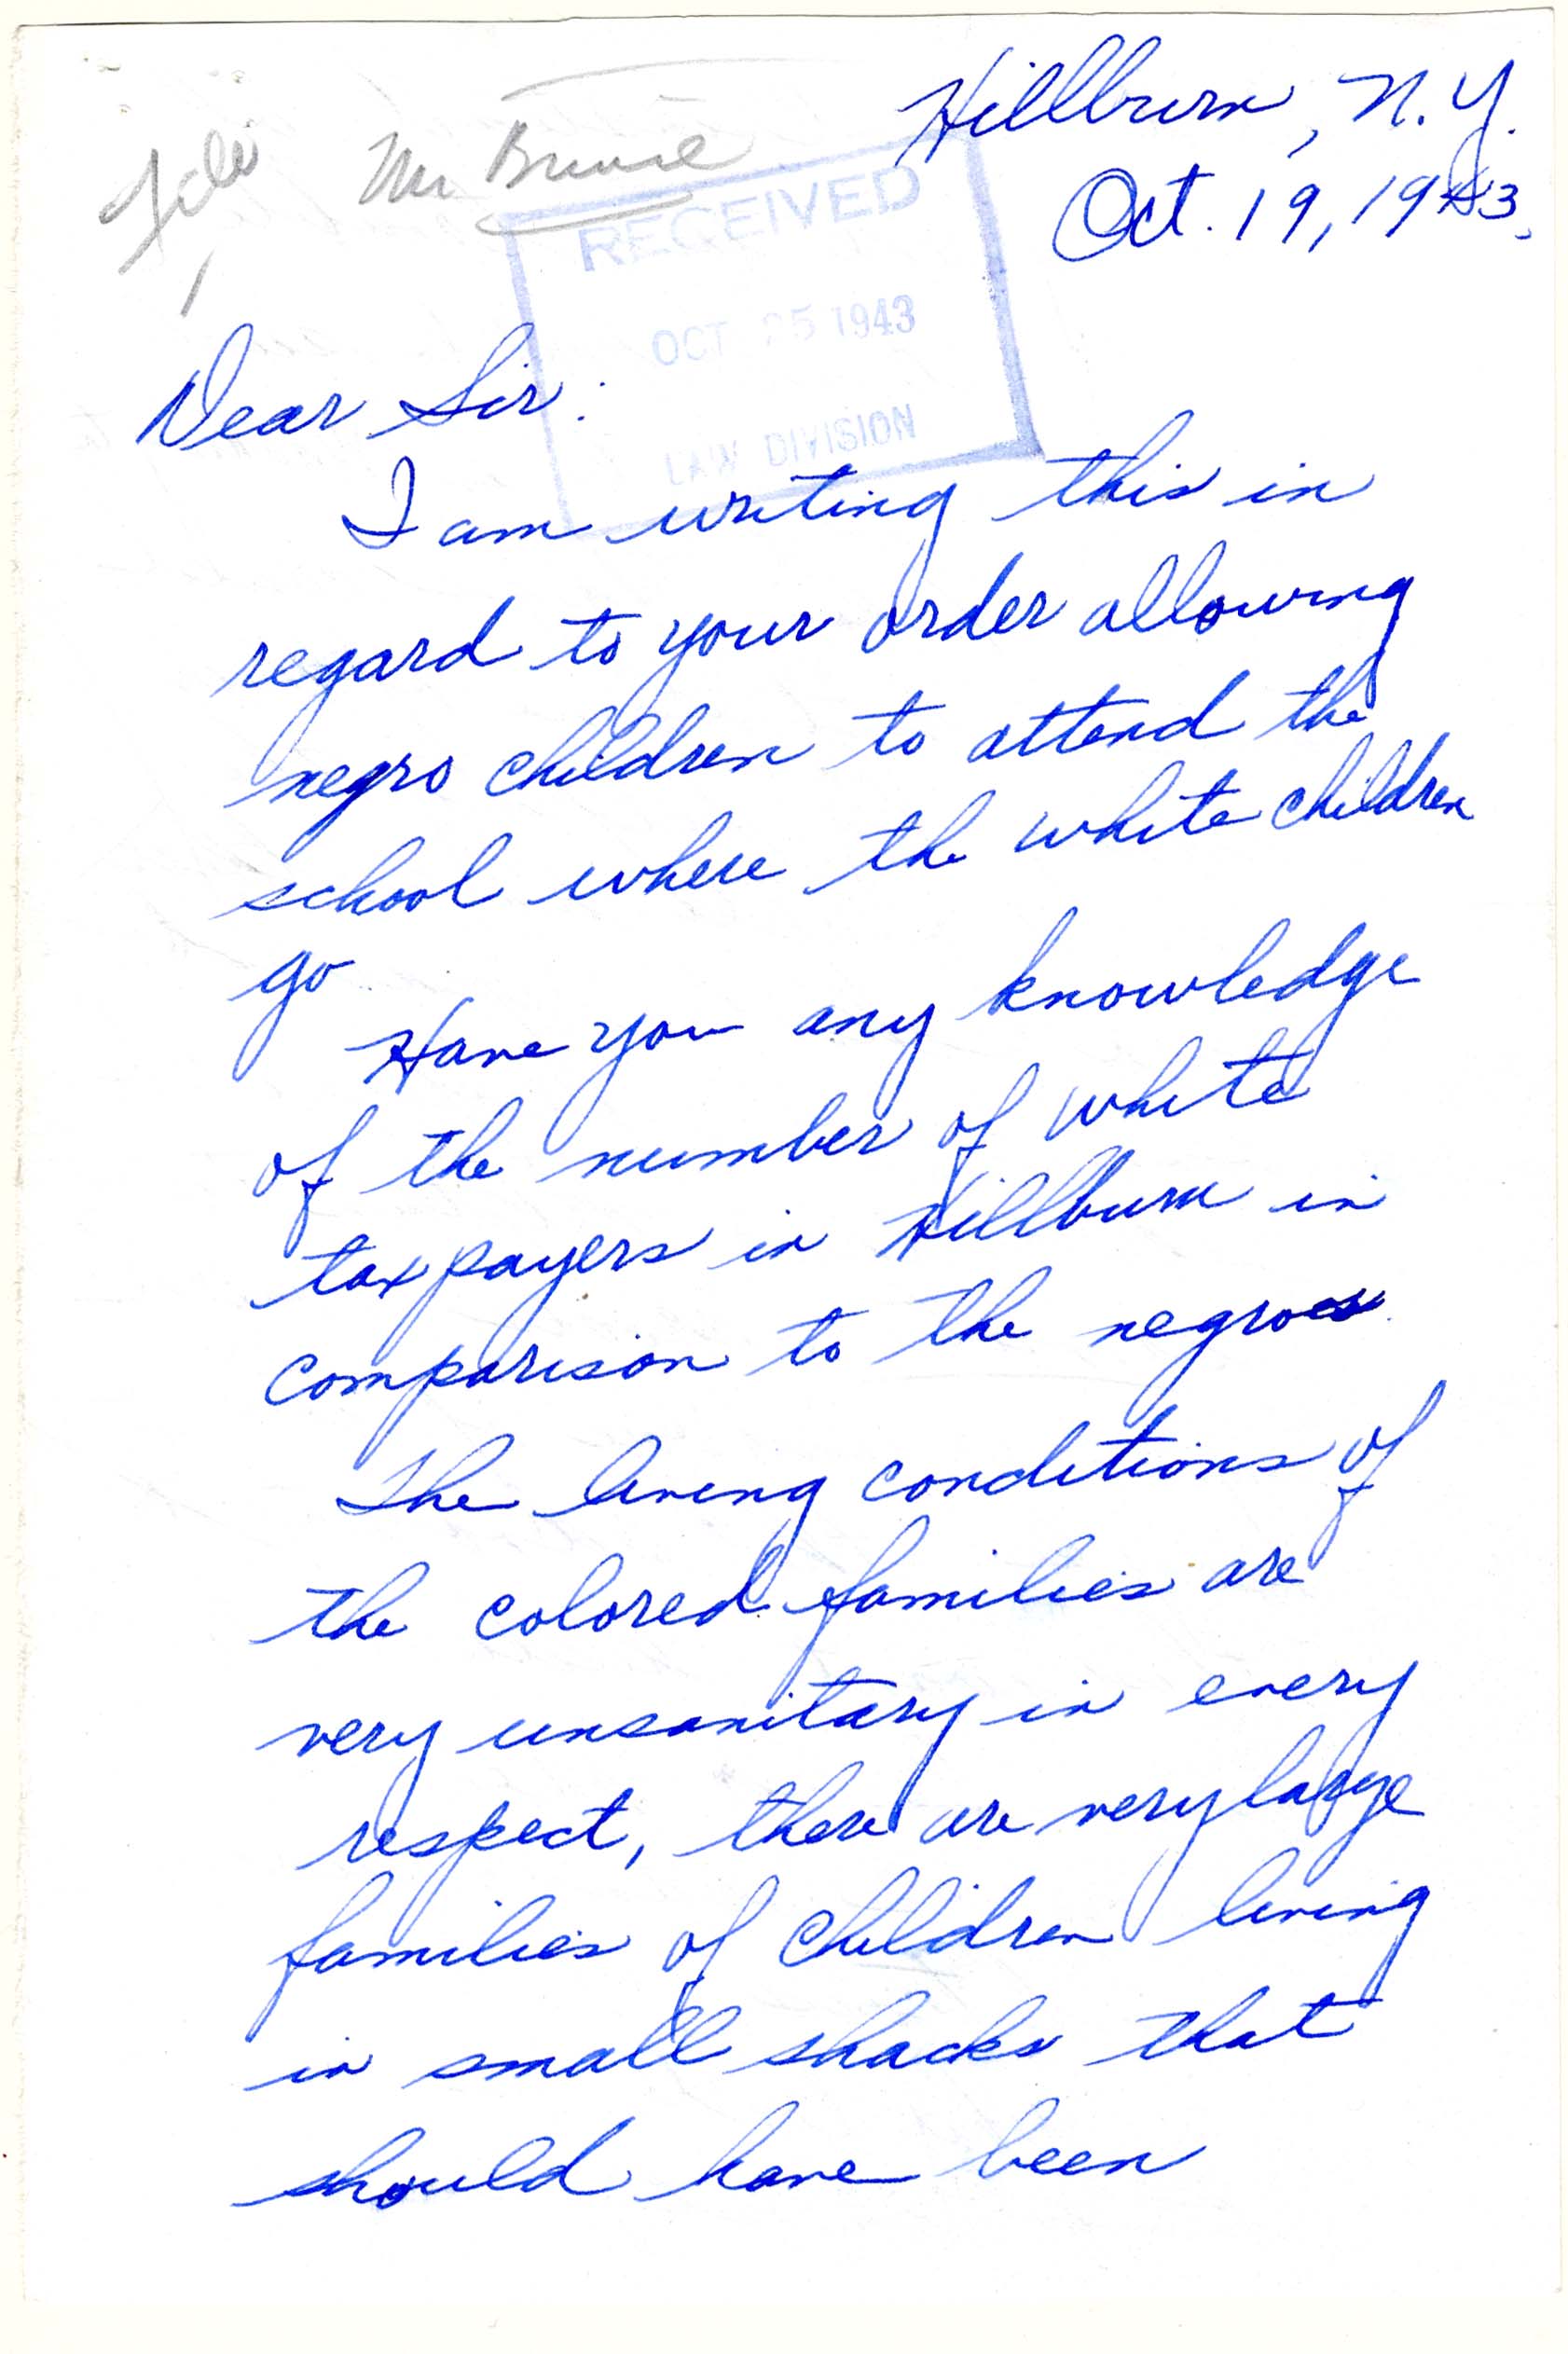 Hillburn, N.Y.
Oct. 19, 1943.
File Mr
RECEIVED
OCT 25 1943
LAW DIVISION
Dear Sir:
I am writing this in
regard to your order allowing
negro children to attend the
school where the white children
go
Have you any knowledge
of the number of white
tax payers in Hillburn in
comparison to the negroes
The living conditions of
the colored families are
very unsanitary in every
respect, there are very large
families of children living
in small shacks that
should have been